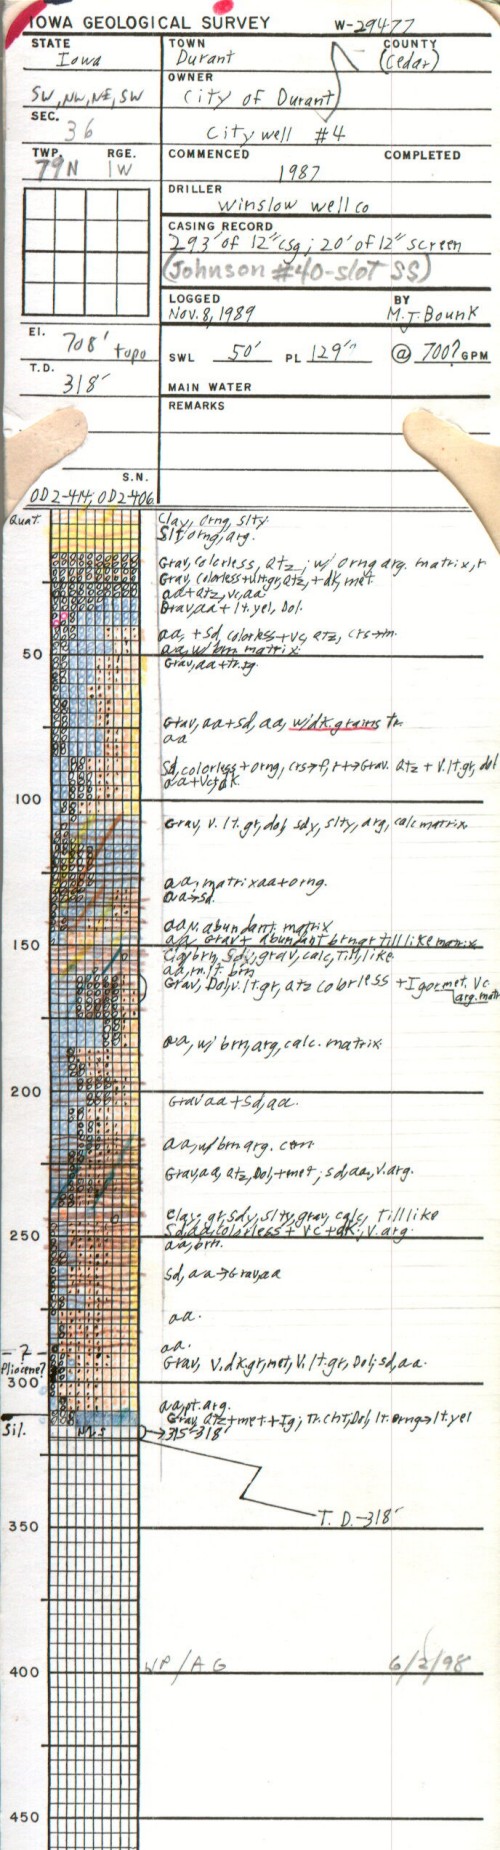 IOWA GEOLOGICAL SURVEY W-29477
STATE
Iowa
TOWN
Durant
COUNTY
(Cedar)
SW, NW, NE, SW
OWNER
City of Durant
SEC.
36
City well #4
TWP. RGE.
79N 1W
COMMENCED COMPLETED
1987
DRILLER
Winslow well co
CASING RECORD
293' of 12" csg; 20' of 12" screen
(Johnson #40-slot SS)
LOGGED BY
Nov. 8, 1989 M.J. Bounk
El. 708' topo
SWL 50' PL 129' @ 700? GPM
T.D.
318'
MAIN WATER
REMARKS
S.N.
OD2-414; OD2-406
Quat.
Clay, orng, slty
Slt, orng, arg.
Grav, colorless, Qtz; w/ orng arg. matrix, r
Grav, colorless+ultgr, Qtz, + dk, met
aa+qtz, vc, aa
Grav, aa+lt. yel, Dol.
aa, + Sd colorless+vc, Qtz, crs→m
aa, w/ brn matrix
50
Grav, aa+tr. sg.
Grav, aa+sd, aa, w/dk grains tr
aa
Sd, colorless + orng, crs→f, r→Grav. Qtz + v. lt. gr, dol
aa+vc+dk
100
Grav, v. lt. gr, dol, sdy, slty, arg, calc matrix
aa, matrix aa+orng.
aa→sd.
aa v. abundant matrix
aa, Grav+ abundant brngr till like matrix
150
Clay brn, sdy, grav, calc, Till, like.
aa, m. lt. brn
Grav, Dol, v. lt. gr, qtz colorless + Ig or met, Vc
arg. matr
aa, w/ brn, arg, calc. matrix.
200
Grav aa + Sd, aa.
aa, w/ brn arg. con
Grav, aa, qtz, Dol, +met; sd, aa, v. arg.
Clay, gr, sdy, slty, grav, calc, Till like
Sd, aa, colorless + vc + dk; v. arg.
250
aa, brn.
Sd, aa→Grav, aa
aa.
aa.
- ? -
Pliocene?
Grav, v. dk gr, met, v. lt. gr, Dol; sd, aa.
300
aa, pt. arg.
Grav, Qtz+met+Ig; Tr. cht, Dol, lt. orng→lt. yel
Sil.
N2s
315'-318'
T. D. - 318'
350
WP/AG 6/2/98
400
450